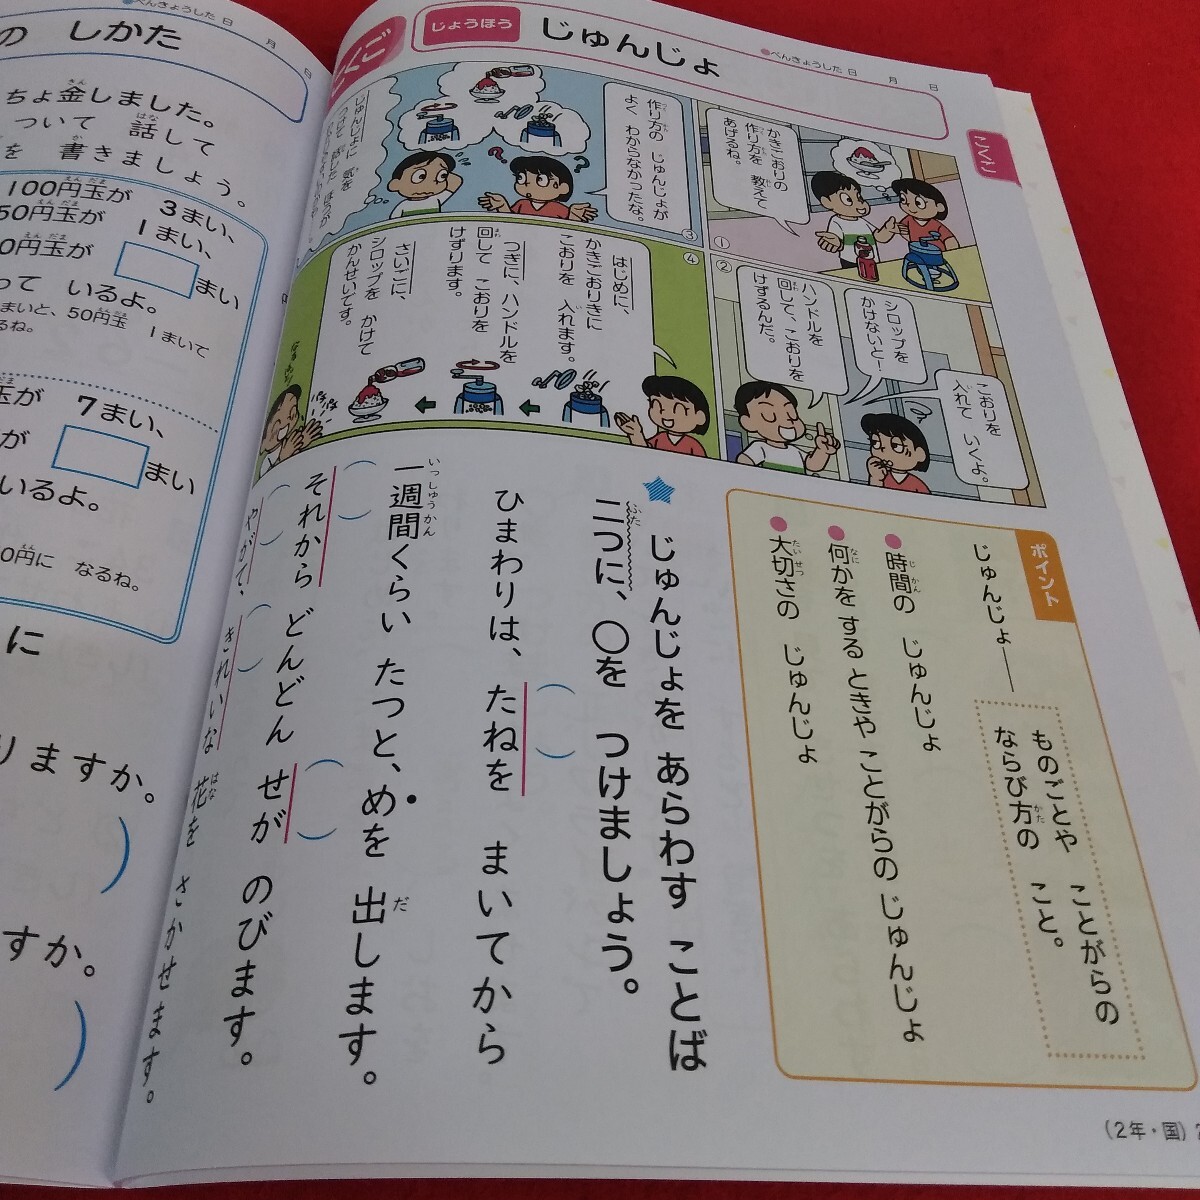 の しかた
べんきょうした日 月 日
ちょ金しました。
ついて 話して
を 書きましょう。
100円玉が 3まい、
50円玉が 1まい、
0円玉が まい
って いるよ。
まいと、50円玉 1まいて
るね。
玉が 7まい、
が まい
いるよ。
0円に なるね。
に
りますか。
すか。
じょうほう
じゅんじょ
べんきょうした日 月 日
こくご
①
かきごおりの
作り方を 教えて
あげるね。
②
こおりを
入れて いくよ。
シロップを
かけないと!
ハンドルを
回して、こおりを
けずるんだ。
③
作り方の じゅんじょが
よく わからなかったな。
じゅんじょに 気を
④
はじめに、
かきごおりきに
こおりを 入れます。
つぎに、ハンドルを
回して こおりを
けずります。
さいごに、
シロップを かけて
かんせいです。
ポイント
じゅんじょ――
ものごとや ことがらの
ならび方の こと。
●時間の じゅんじょ
●何かを するときや ことがらの じゅんじょ
●大切さの じゅんじょ
★ じゅんじょを あらわす ことば
二つに、○を つけましょう。
ひまわりは、たねを まいてから
一週間くらい たつと、めを 出します。
それから どんどん せが のびます。
やがて、きれいな 花を さかせます。
(2年・国)